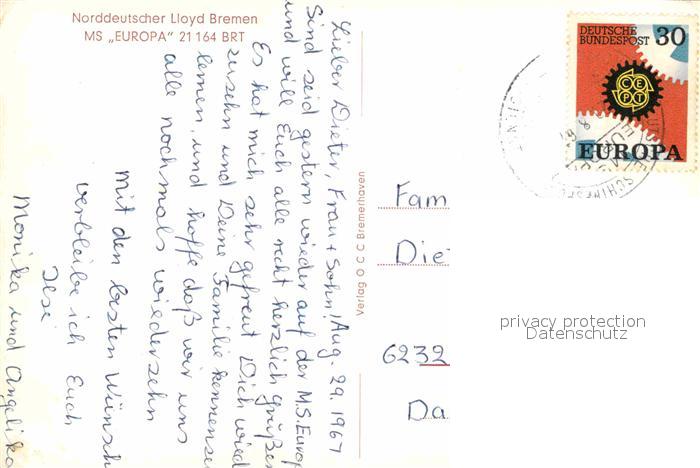 Norddeutscher Lloyd Bremen
MS „EUROPA" 21 164 BRT
Lieber Dieter, Frau + Sohn! Aug. 29. 1967
Sind seid gestern wieder auf der M.S. Europ
und will Euch alle recht herzlich grüßen
Es hat mich sehr gefreut Dich wied
zusehn und Deine Familie kennenzu
lernen, und hoffe daß wir uns
alle nochmals wiedersehn
Mit den besten Wünsch
verbleibe ich Euch
Ilse
Monika und Angelika
Verlag O C C Bremerhaven
DEUTSCHE
BUNDESPOST 30
CEPT
EUROPA
Fam
Die
6232
Da
privacy protection
Datenschutz